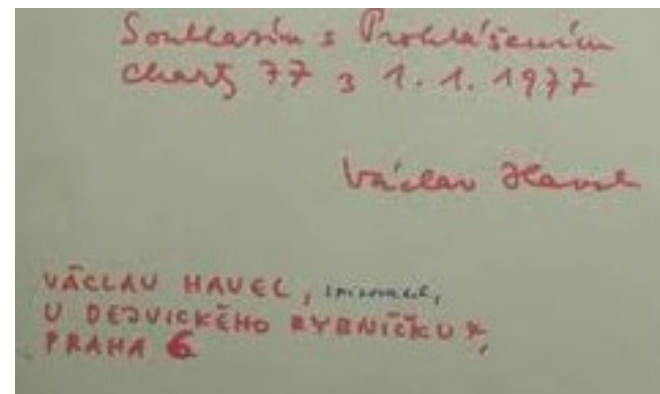 Souhlasím s Prohlášením
Charty 77 z 1.1.1977
Václav Havel
VÁCLAV HAVEL, spisovatel,
U DEJVICKÉHO RYBNÍČKU
PRAHA 6